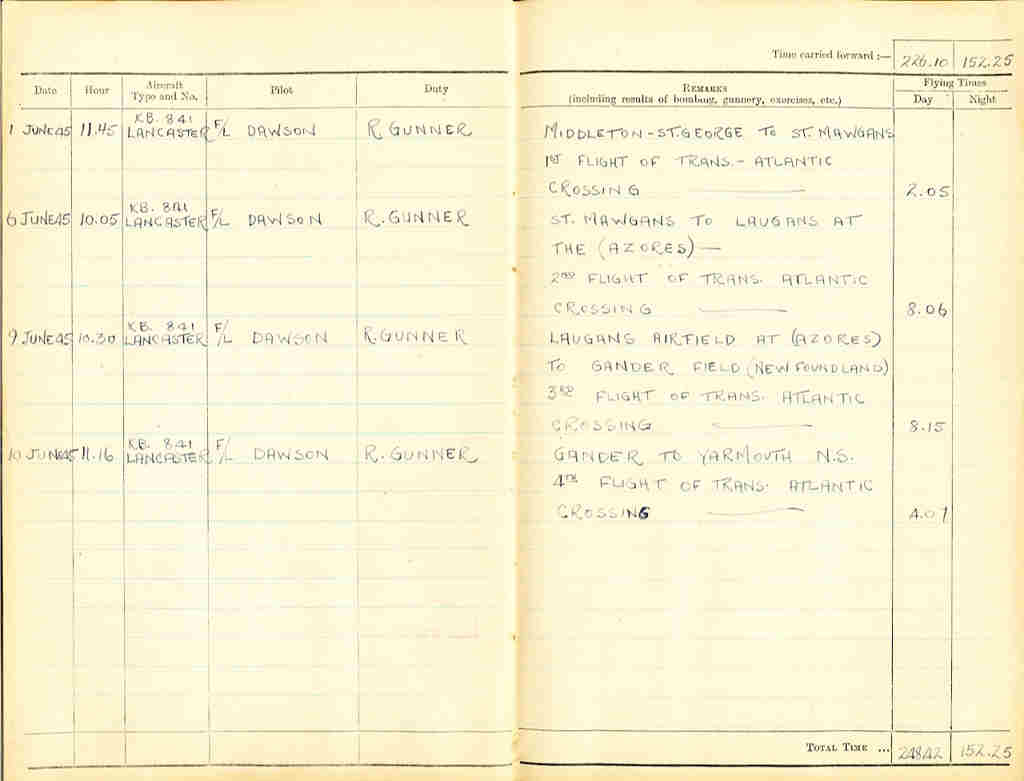 Time carried forward :— 226.10 152.25
Date Hour Aircraft Type and No. Pilot Duty
REMARKS (including results of bombing, gunnery, exercises, etc.) Flying Times Day Night
1 JUNE 45 11.45 KB. 841 LANCASTER F/L DAWSON R GUNNER
MIDDLETON - ST. GEORGE TO ST. MAWGANS
1ST FLIGHT OF TRANS. - ATLANTIC
CROSSING 2.05
6 JUNE 45 10.05 KB. 841 LANCASTER F/L DAWSON R. GUNNER
ST. MAWGANS TO LAUGANS AT
THE (AZORES) —
2ND FLIGHT OF TRANS. ATLANTIC
CROSSING 8.06
9 JUNE 45 10.30 KB. 841 LANCASTER F/L DAWSON R. GUNNER
LAUGANS AIRFIELD AT (AZORES)
TO GANDER FIELD (NEW FOUNDLAND)
3RD FLIGHT OF TRANS. ATLANTIC
CROSSING 8.15
10 JUNE 45 11.16 KB. 841 LANCASTER F/L DAWSON R. GUNNER
GANDER TO YARMOUTH N.S.
4TH FLIGHT OF TRANS. ATLANTIC
CROSSING
TOTAL TIME ... 248.42 152.25